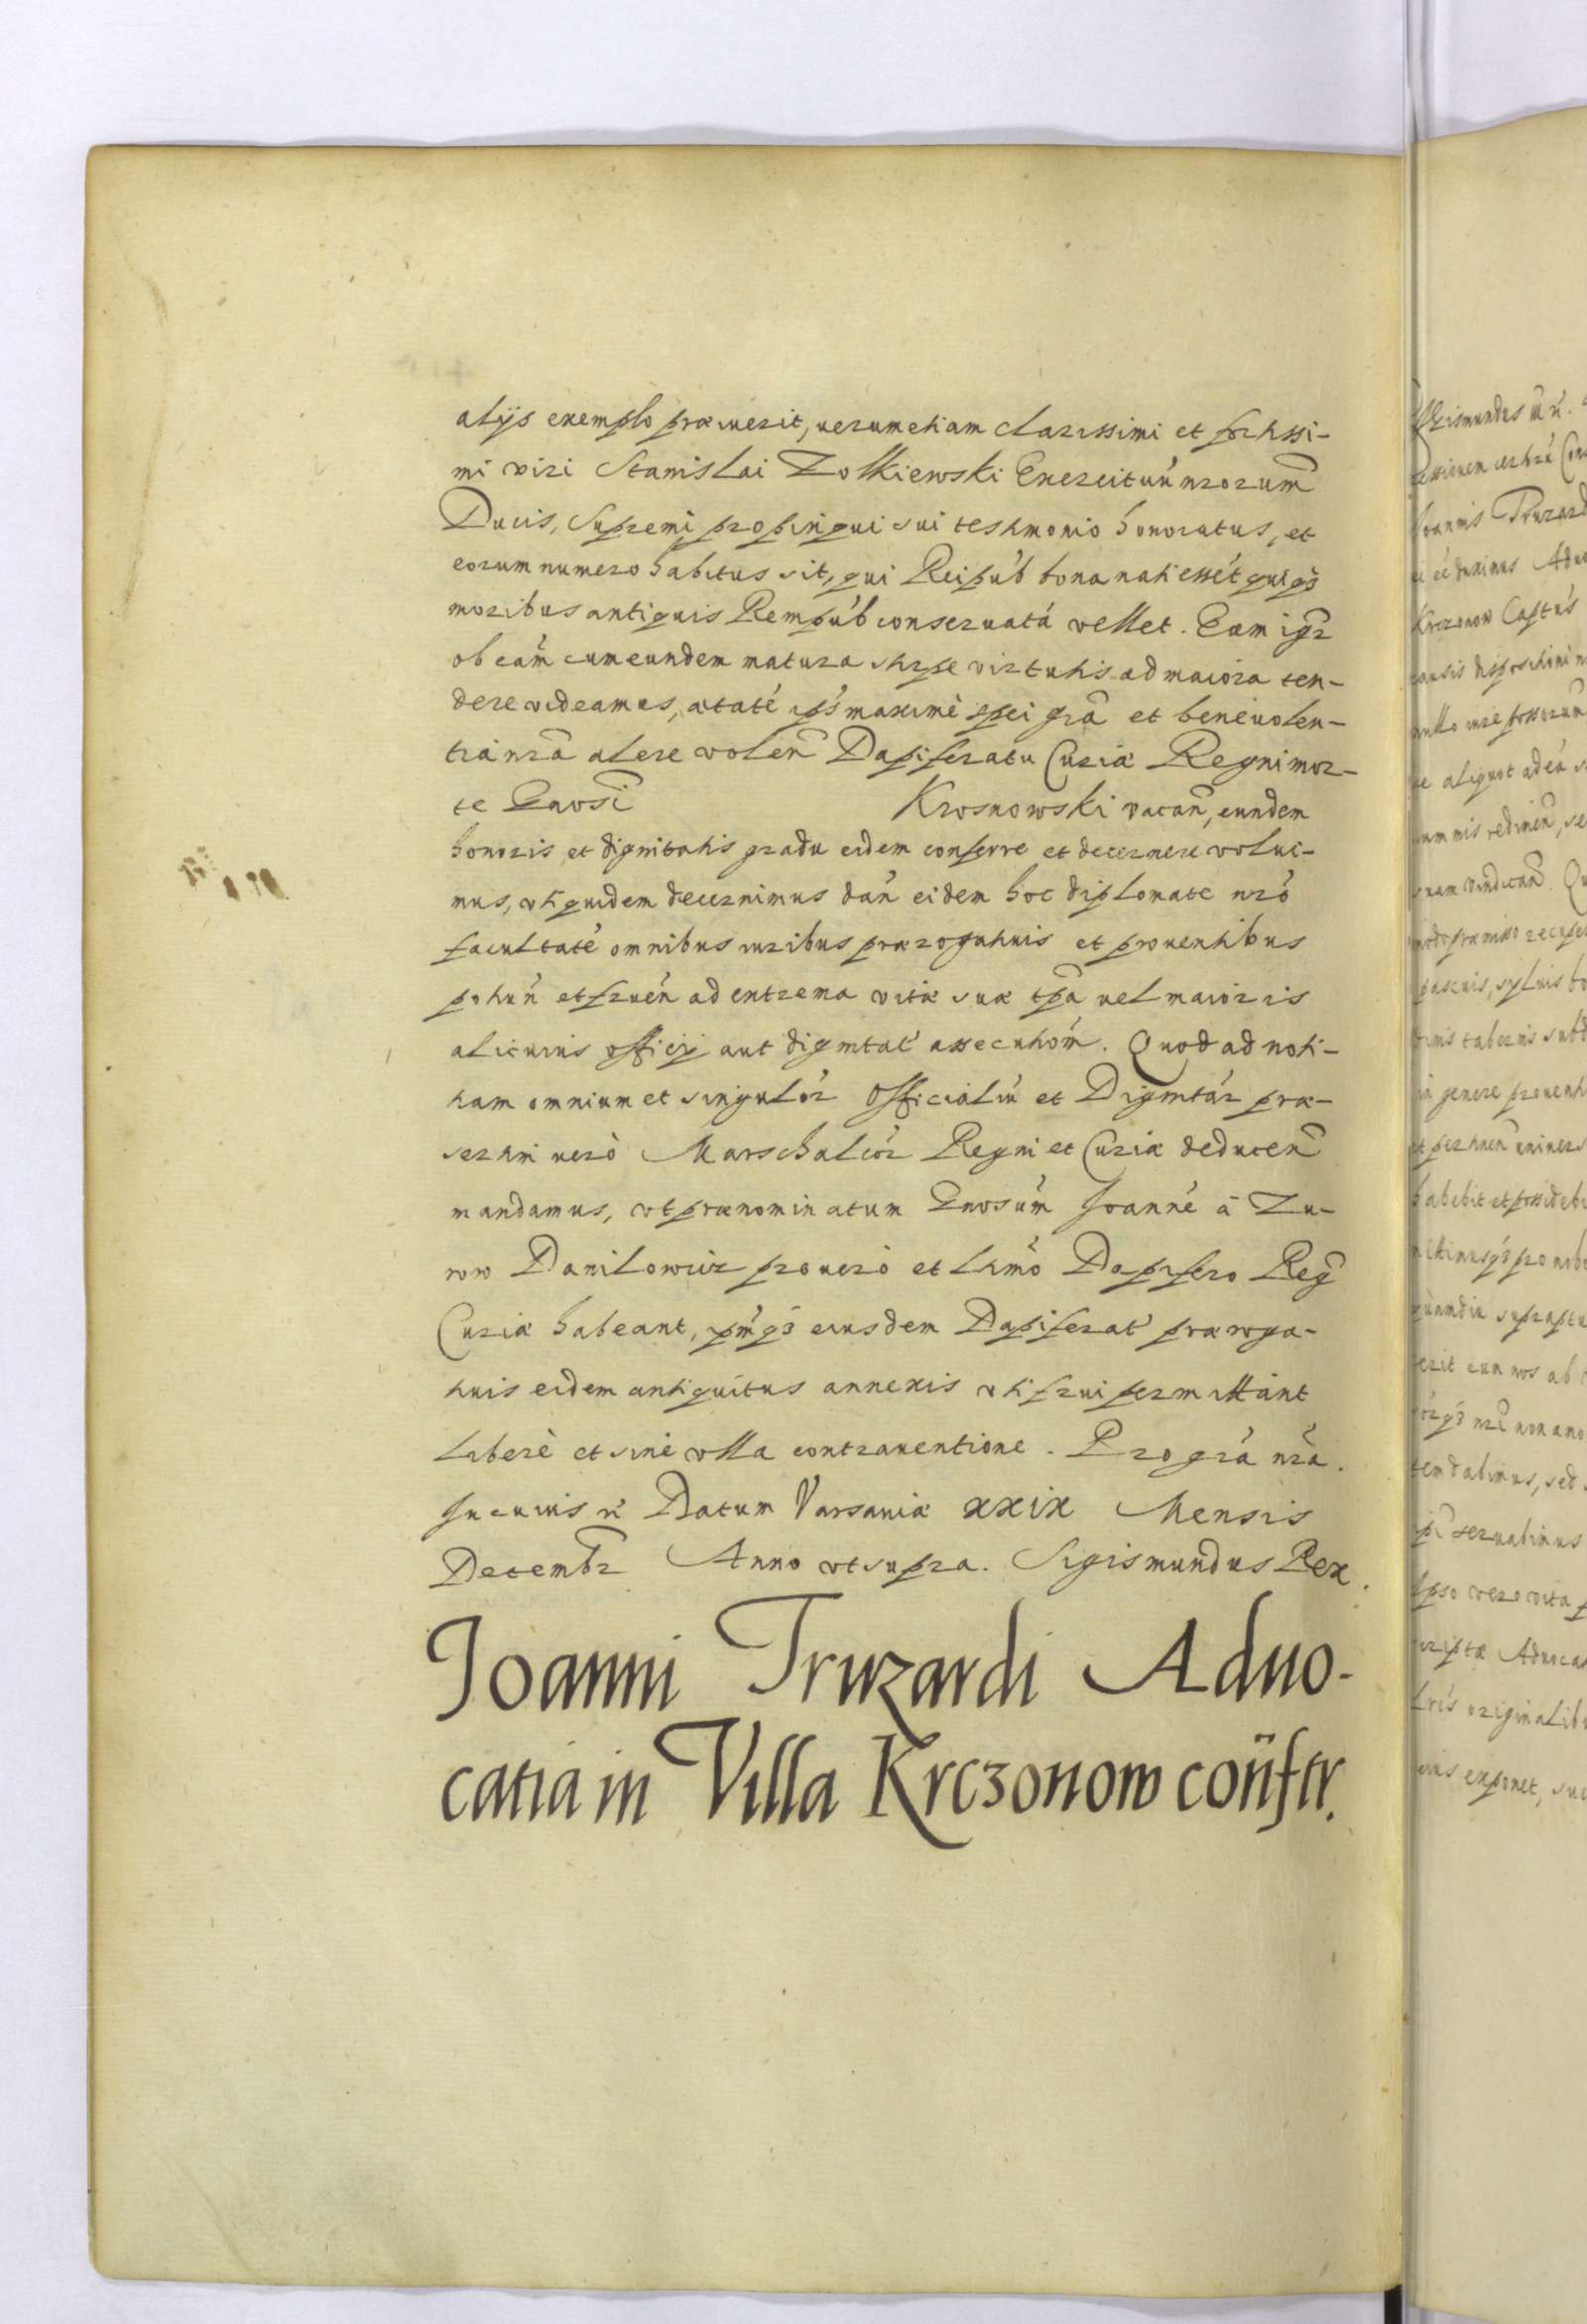 alijs exemplo præiuerit, uerumetiam clarissimi et fortissi-
mi viri Stanislai Zolkiewski Exercituũ nrorum
Ducis, Supremi propinqui sui testimonio honoratus, et
eorum numero habitus sit, qui Reipub bona nati essẽt quiq3
moribus antiquis Rempub conseruatá vellet. Eam igr
ob eam cum eundem natura stirpe virtutis ad maiora ten-
dere videamus, ætaté ips maximè spei gra et beneuolen-
tia nra alere volen Dapiferatu Curiæ Regni mor-
te Gnosi Krosnowski vacan, eundem
honoris et dignitatis gradu eidem conferre et decernere volui-
mus, vti quidem decernimus dan eidem hoc diplomate nro
facultaté omnibus iuribus prærogatiuis et prouentibus
potiun et fruen ad extrema vitæ suæ tpa vel maioris
alicuius officij aut dignitat assecutiom. Quod ad noti-
tiam omnium et singulor Officialiũ et Dignitar præ-
sertim uerò Marschalcor Regni et Curiæ deducen
mandamus, vt prænominatum Gnosum Joanné à Zu-
row Danilowicz pro uero et ltimo Dapifero Reg
Curiæ habeant, ipmq3 eiusdem Dapiferat præroga-
tiuis eidem antiquitus annexis vti frui permittant
liberè et sine vlla contrauentione. Pro gra nra.
In cuius r Datum Varsauiæ xxix Mensis
Decembr Anno vt supra. Sigismundus Rex.
Joanni Truzardi Aduo-
catia in Villa Krczonow conftr.